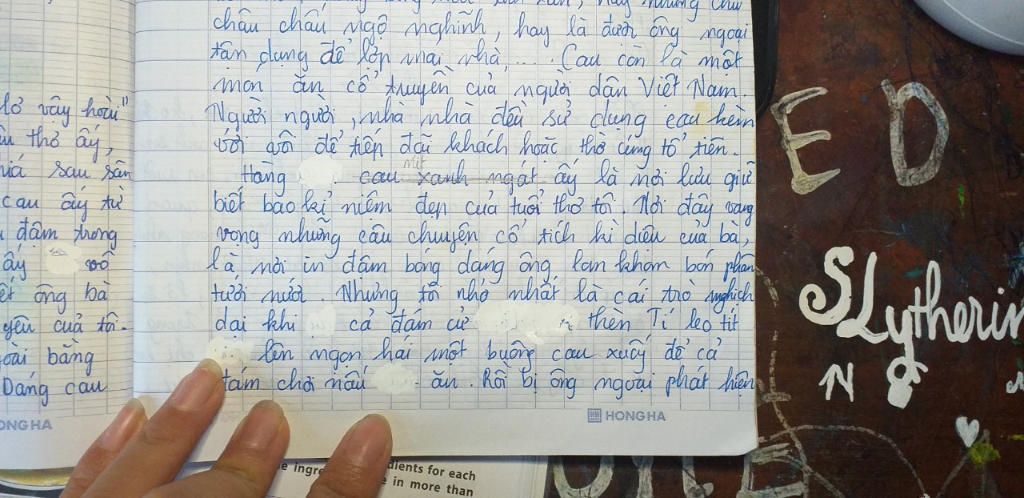 châu chấu ngộ nghĩnh, hay là được ông ngoại
tận dụng để lợp mái nhà,... Cau còn là một
món ăn cổ truyền của người dân Việt Nam.
Người người, nhà nhà đều sử dụng cau kèm
với vôi để tiến đãi khách hoặc thờ cúng tổ tiên.
Hàng cau xanh ngát ấy là nơi lưu giữ
biết bao kỉ niệm đẹp của tuổi thơ tôi. Nơi đây vang
vọng những câu chuyện cổ tích kì diệu của bà,
là nơi in đậm bóng dáng ông lom khom bón phân
tưới nước. Nhưng tôi nhớ nhất là cái trò nghịch
dại khi cả đám cử thèn Tí leo tít
lên ngọn hái một buồng cau xuống để cả
đám chơi nấu ăn. Rồi bị ông ngoại phát hiện
vây hoài"
thơ ấy,
sau sân
cau ấy từ
đậm trong
ấy vô
ông bà
yêu của tôi.
bằng
Dáng cau
HONG HA
HONG HA
E D
SLytherin
N
dients for each
e in more than